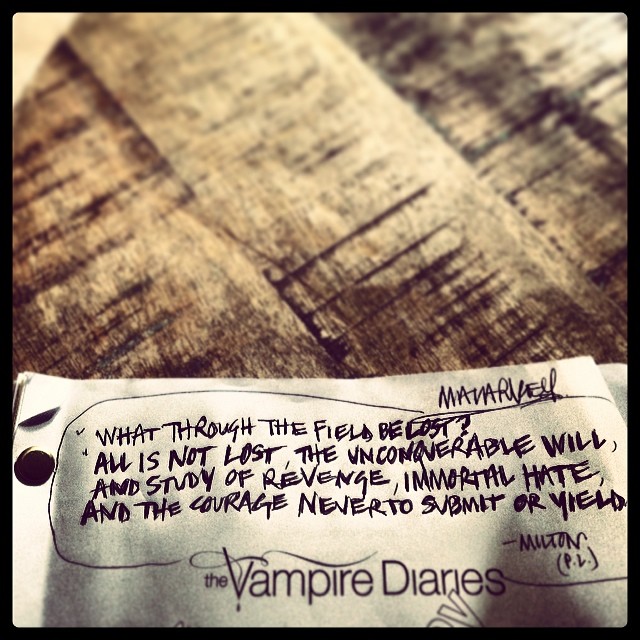 "WHAT THROUGH THE FIELD BE LOST?
"ALL IS NOT LOST, THE UNCONQUERABLE WILL,
AND STUDY OF REVENGE, IMMORTAL HATE,
AND THE COURAGE NEVER TO SUBMIT OR YIELD
-MILTON
(P.L.)
the Vampire Diaries